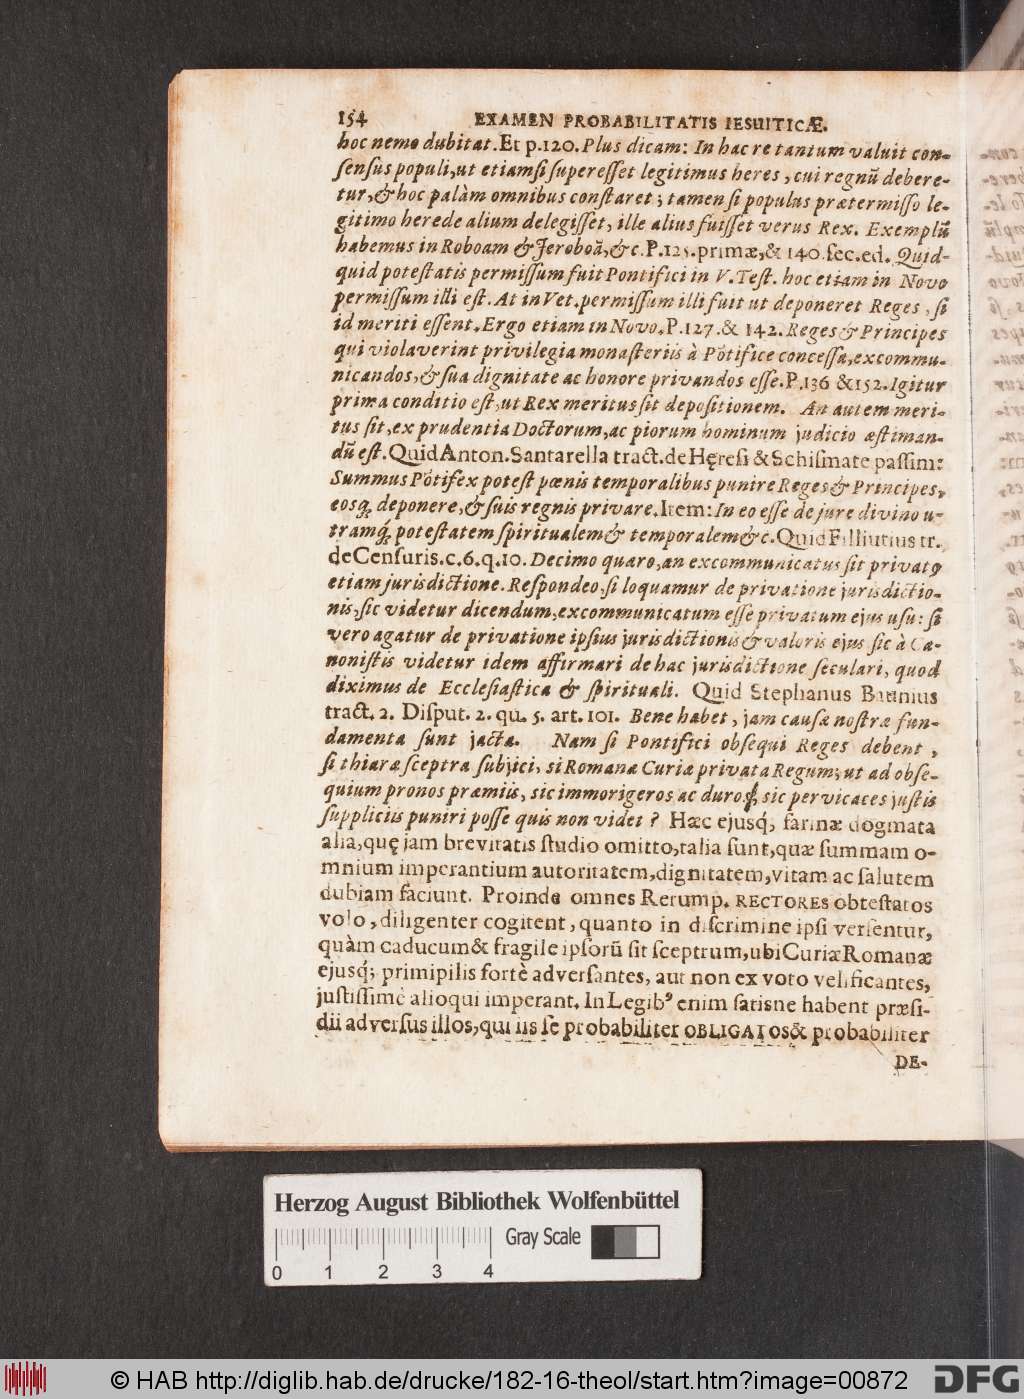 154 EXAMEN PROBABILITATIS IESUITICÆ.
hoc nemo dubitat. Et p.120. Plus dicam: In hac re tantum valuit con-
sensus populi, ut etiamsi superesset legitimus heres, cui regnũ debere-
tur, & hoc palàm omnibus constaret; tamen si populus prætermisso le-
gitimo herede alium delegisset, ille alius fuisset verus Rex. Exemplũ
habemus in Roboam & Jeroboã, &c. P.125. primæ, & 140. sec. ed. Quid-
quid potestatis permissum fuit Pontifici in V. Test. hoc etiam in Novo
permissum illi est. At in Vet. permissum illi fuit ut deponeret Reges, si
id meriti essent. Ergo etiam in Novo. P.127. & 142. Reges & Principes
qui violaverint privilegia monasteriis à Põtifice concessa, excommu-
nicandos, & sua dignitate ac honore privandos esse. P.136 & 152. Igitur
prima conditio est, ut Rex meritus sit depositionem. An autem meri-
tus sit, ex prudentia Doctorum, ac piorum hominum judicio æstiman-
dũ est. Quid Anton. Santarella tract. de Hęresi & Schismate passim:
Summus Põtifex potest pœnis temporalibus punire Reges & Principes,
eosq́ deponere, & suis regnis privare. Item: In eo esse de jure divino u-
tramq́ potestatem spiritualem & temporalem &c. Quid Filliutius tr.
de Censuris. c. 6. q. 10. Decimo quæro, an excommunicatus sit privatꝰ
etiam jurisdictione. Respondeo, si loquamur de privatione jurisdictio-
nis, sic videtur dicendum, excommunicatum esse privatum ejus usu: si
vero agatur de privatione ipsius jurisdictionis & valoris ejus sic à Ca-
nonistis videtur idem affirmari de hac jurisdictione seculari, quod
diximus de Ecclesiastica & spirituali. Quid Stephanus Baunius
tract. 2. Disput. 2. qu. 5. art. 101. Bene habet, jam causæ nostræ fun-
damenta sunt jacta. Nam si Pontifici obsequi Reges debent,
si thiaræ sceptra subjici, si Romanæ Curiæ privata Regum; ut ad obse-
quium pronos præmiis, sic immorigeros ac duros, sic pervicaces justis
suppliciis puniri posse quis non videt? Hæc ejusq́; farinæ dogmata
alia, quę jam brevitatis studio omitto, talia sunt, quæ summam o-
mnium imperantium autoritatem, dignitatem, vitam ac salutem
dubiam faciunt. Proinde omnes Rerump. RECTORES obtestatos
volo, diligenter cogitent, quanto in discrimine ipsi versentur,
quàm caducum & fragile ipsorũ sit sceptrum, ubi Curiæ Romanæ
ejusq́; primipilis fortè adversantes, aut non ex voto velificantes,
justissimè alioqui imperant. In Legibꝰ enim satisne habent præsi-
dii adversus illos, qui iis se probabiliter OBLIGATOS & probabiliter
DE-
Herzog August Bibliothek Wolfenbüttel
Gray Scale
0 1 2 3 4
© HAB http://diglib.hab.de/drucke/182-16-theol/start.htm?image=00872
DFG